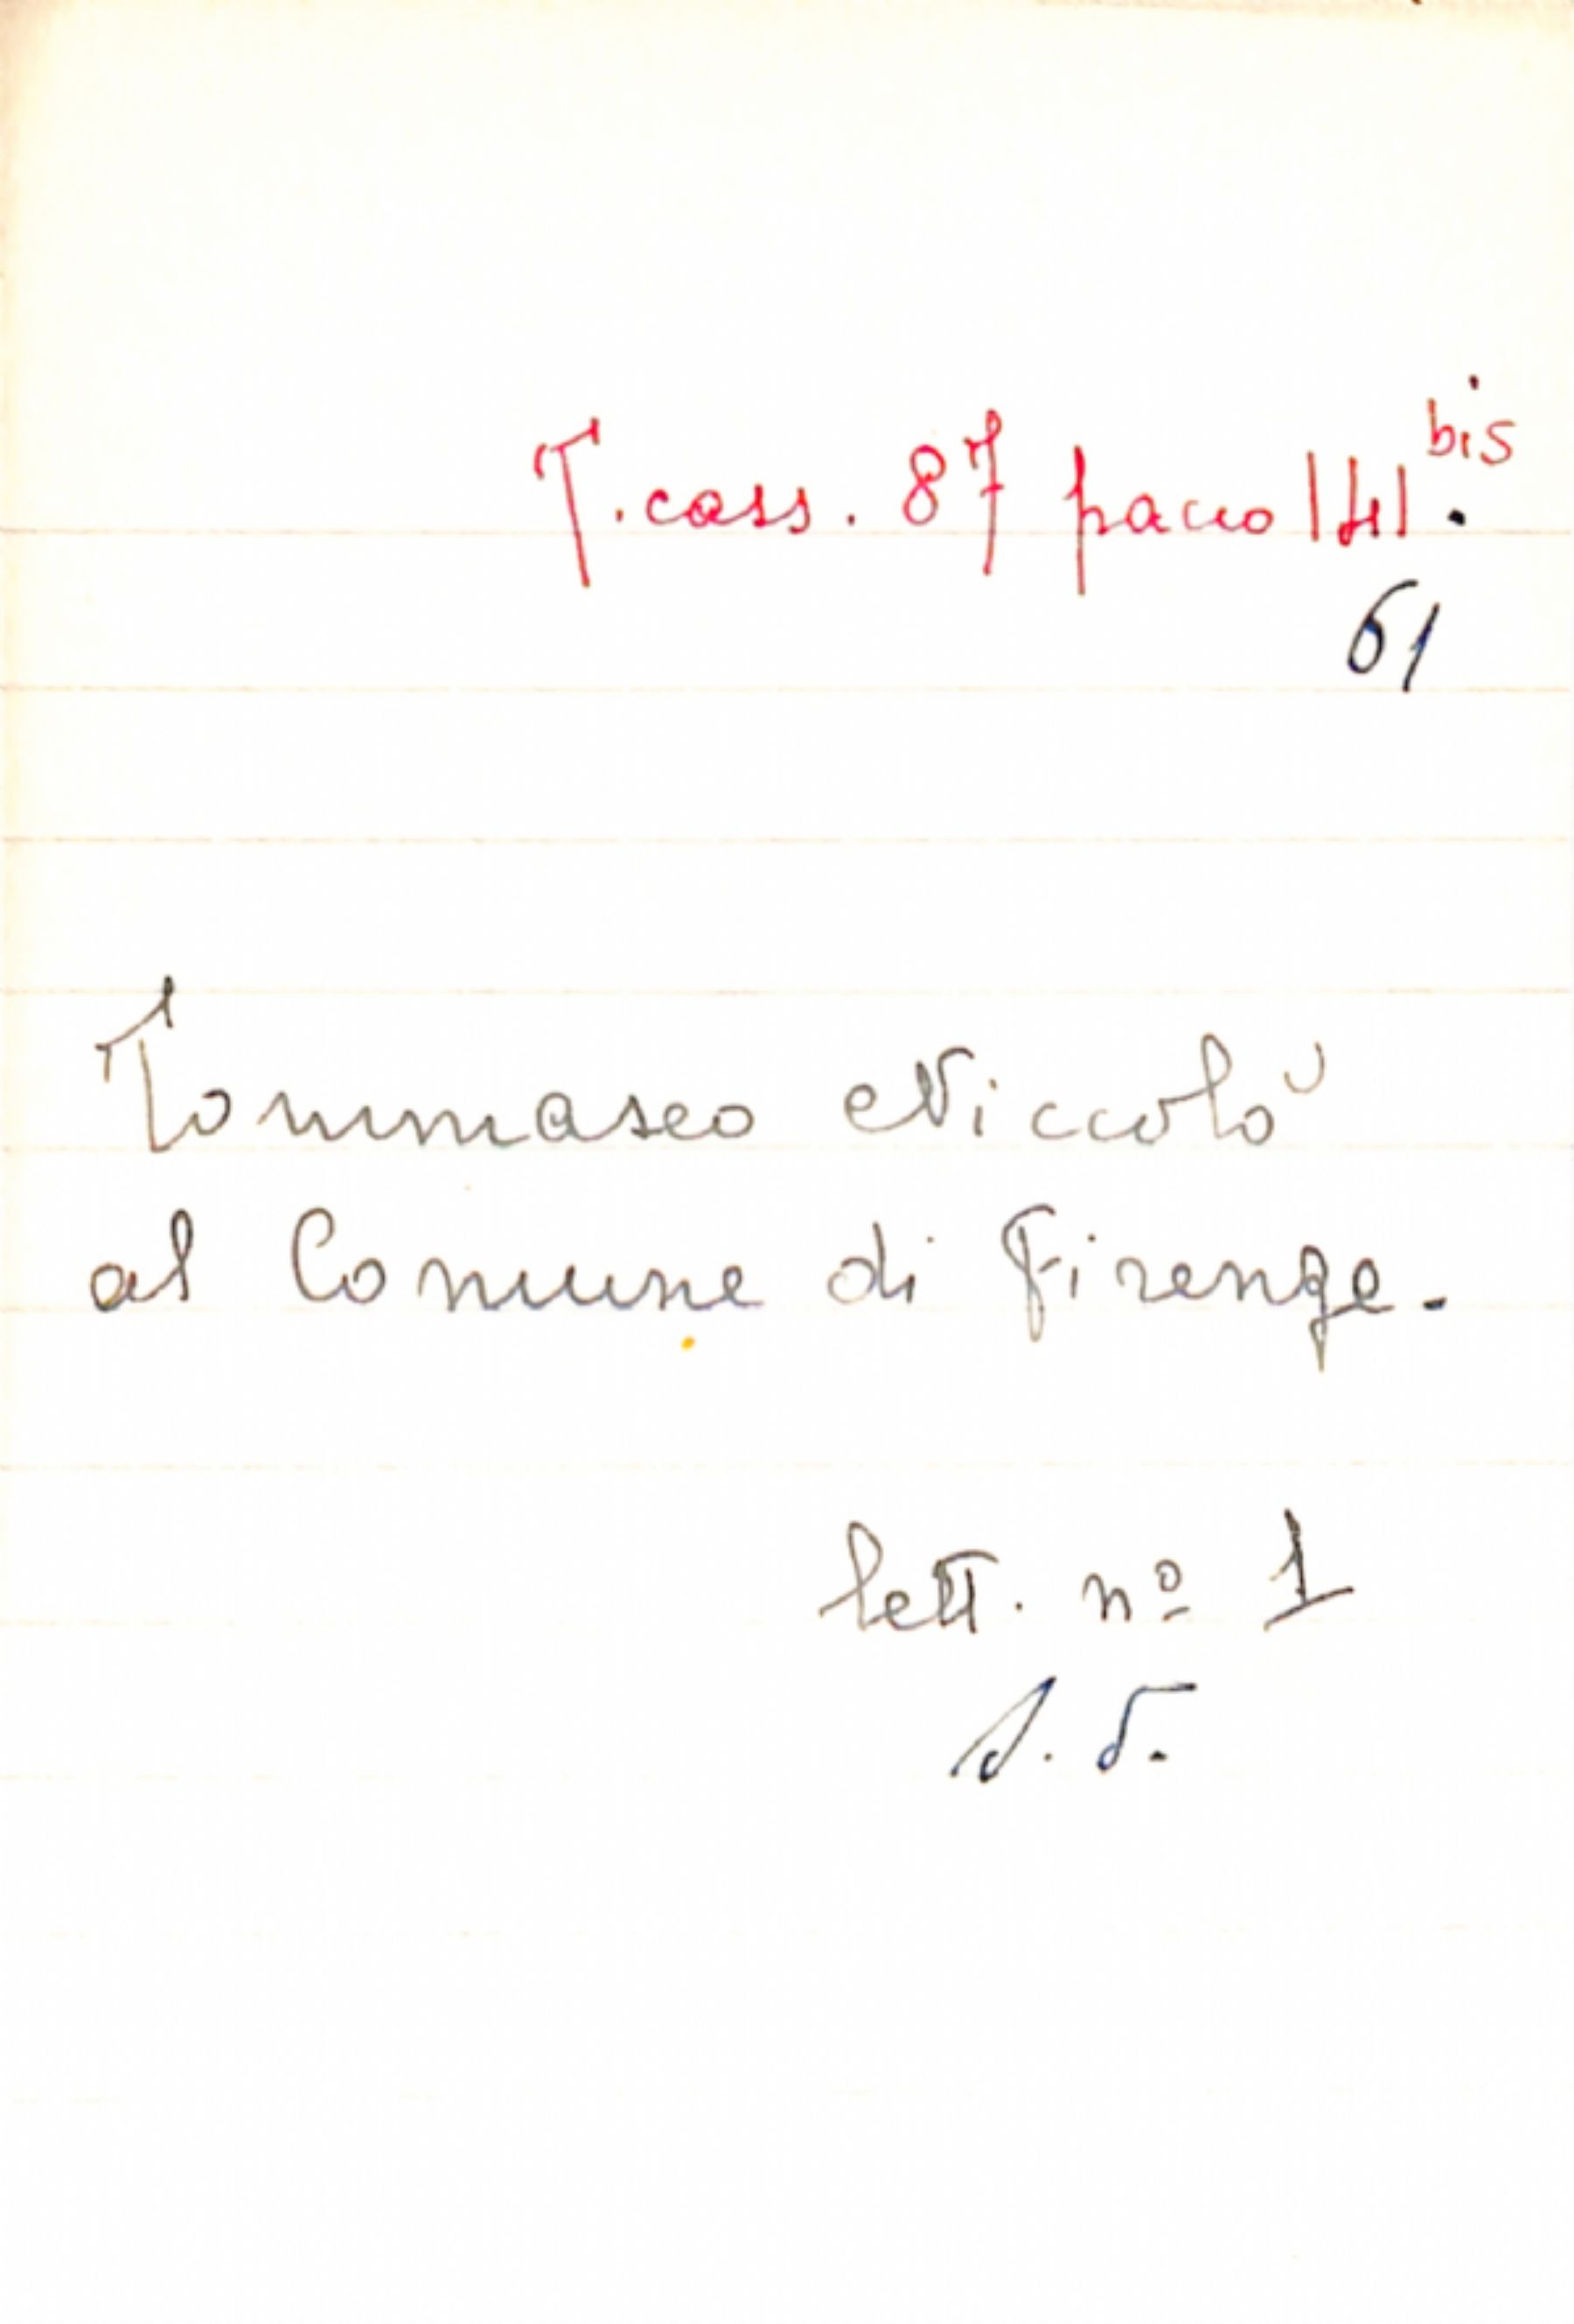 T. cass. 87 pacco 141 bis.
61
Tommaseo Niccolò
al Comune di Firenze.
lett. nº 1